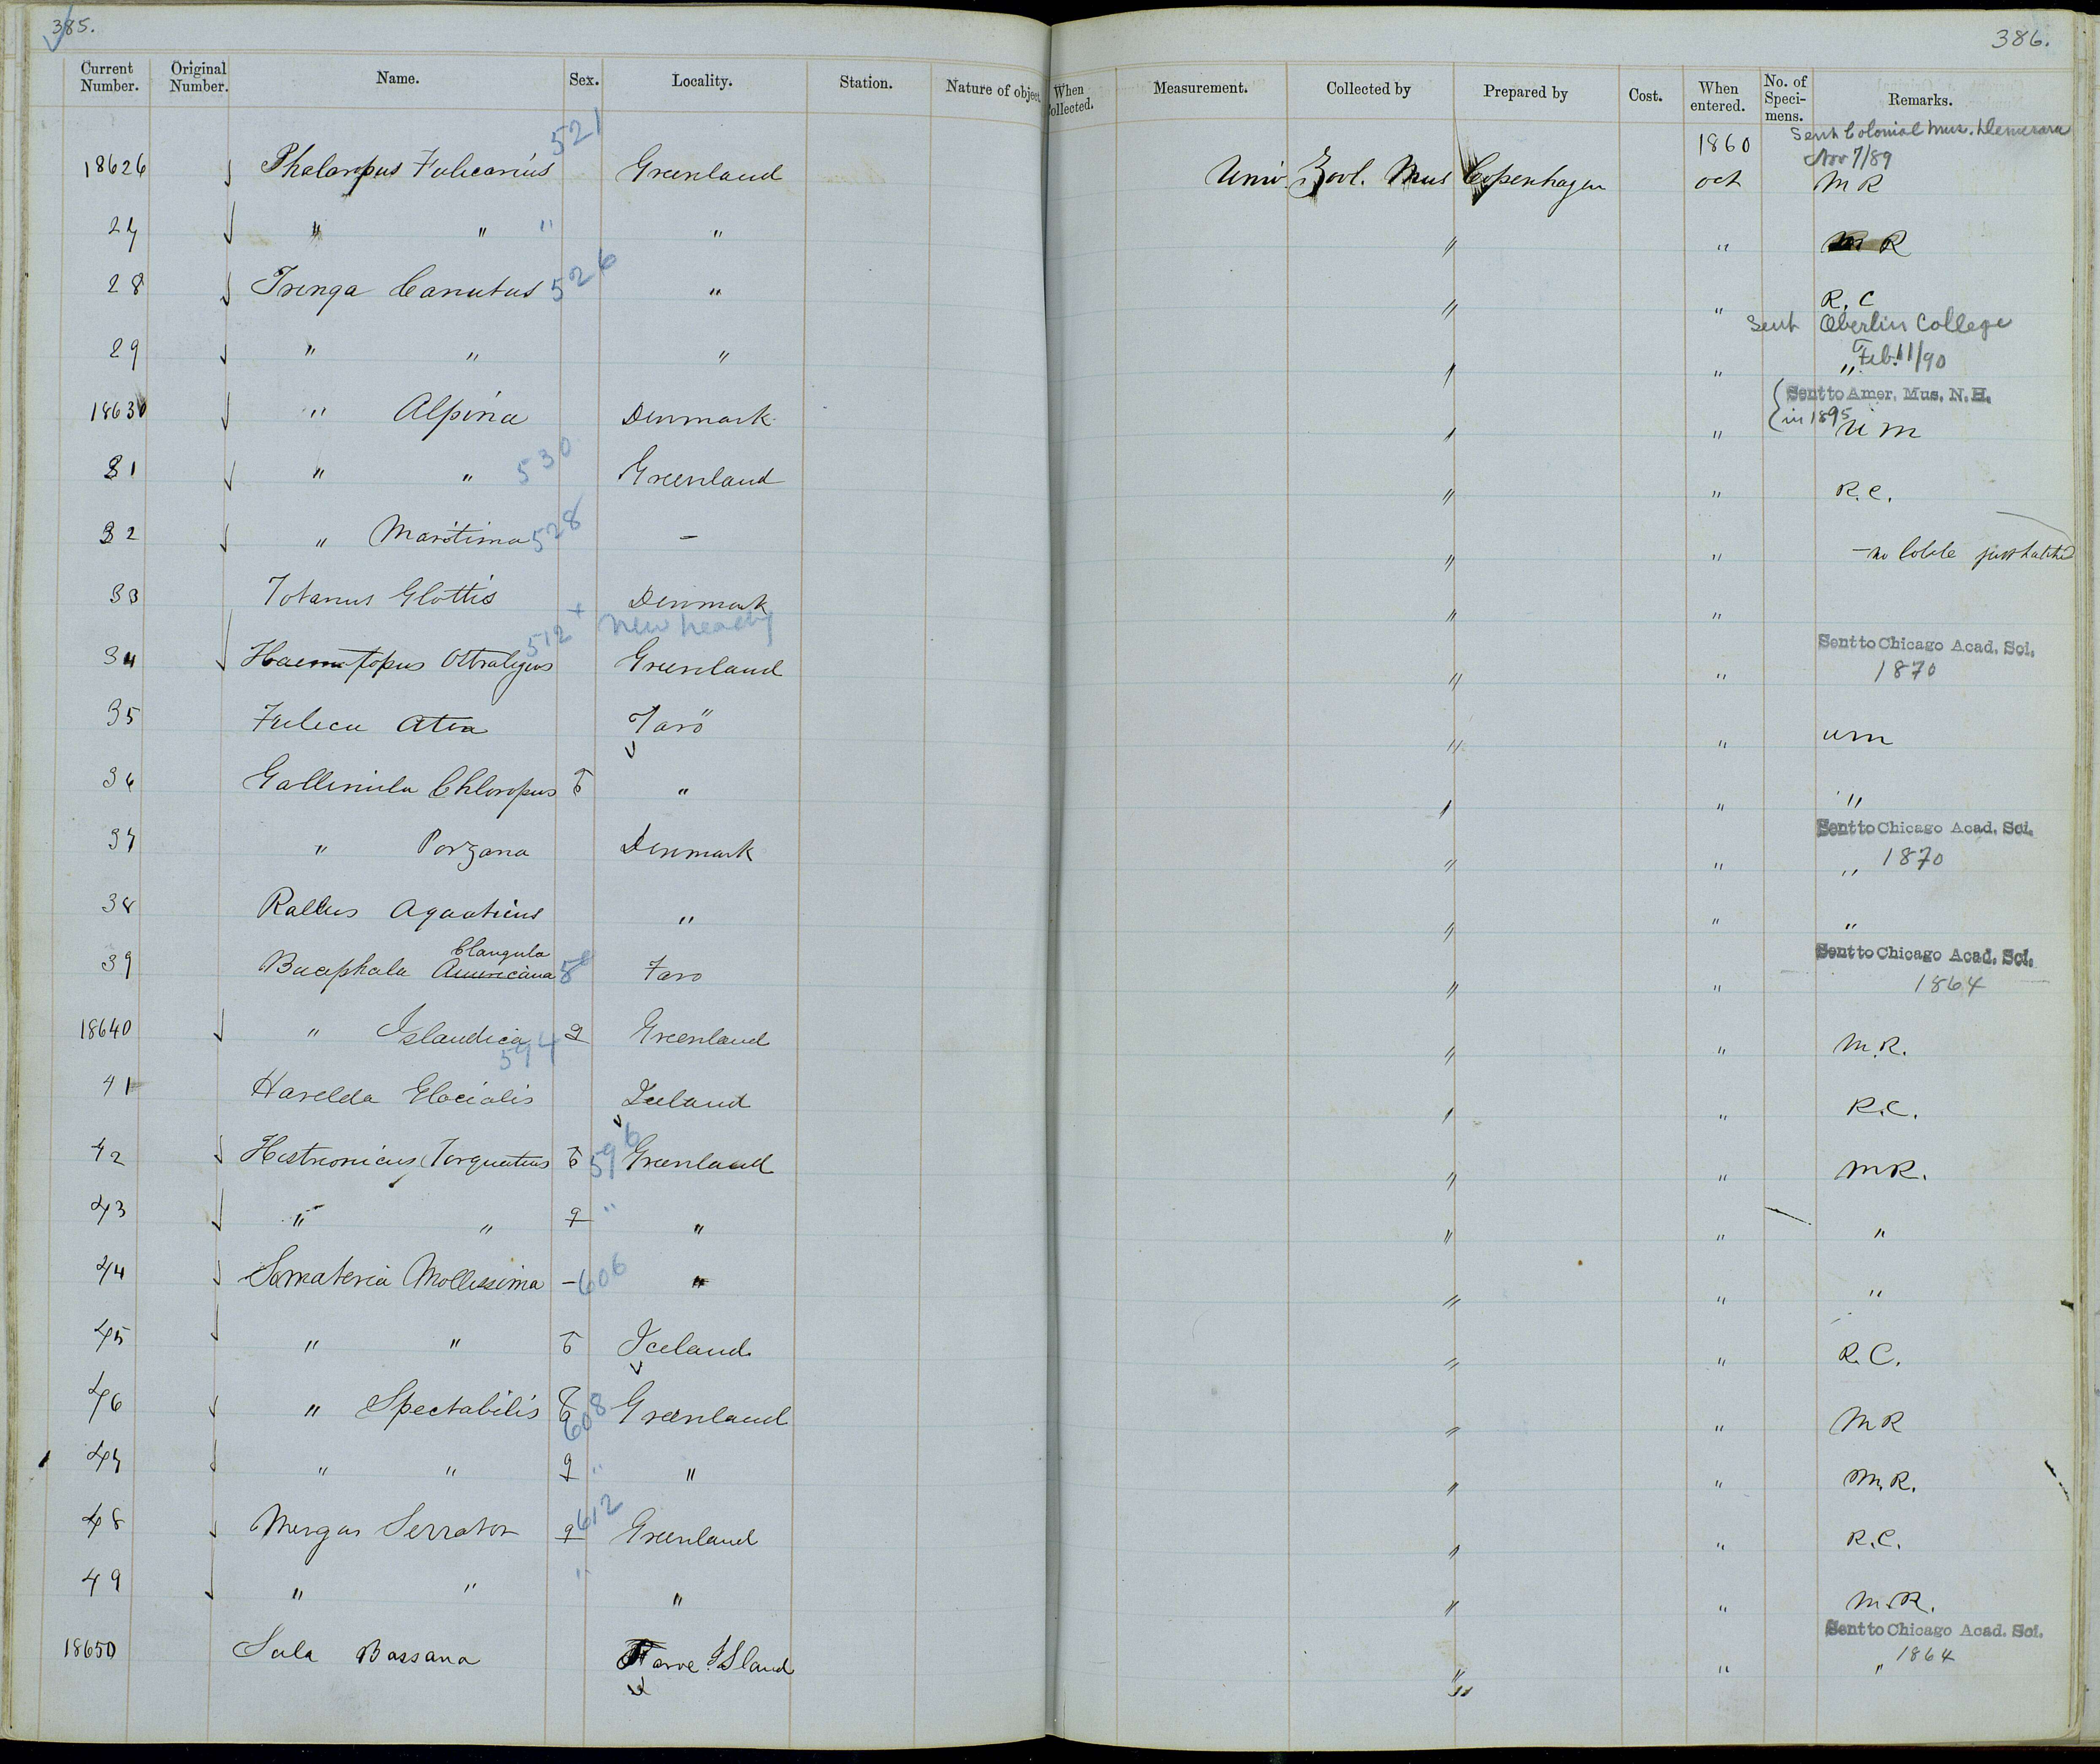 385.
386.
Current Number. Original Number. Name. Sex. Locality. Station. Nature of object When Collected. Measurement. Collected by Prepared by Cost. When entered. No. of Speci-mens. Remarks.
521 1860 Sent Colonial Mus. Demerara
Nov 7/89
18626 Phalaropus Fulicarius Greenland Univ. Zool. Mus Copenhagen oct M R
27 " " " " " " M R
28 Tringa Canutus 526 " " " R. C
Sent Oberlin College
29 " " " " " " Feb. 11/90
Sent to Amer. Mus. N. H.
in 1895
18630 " Alpina Denmark " " U M
31 " " 530 Greenland " " R. C.
32 " Maritima 528 - " " - no lable just hatched
33 Totanus Glottis Denmark " "
512 + New heading
Sent to Chicago Acad. Sci.
34 Haematopus Ostralegus Greenland " " 1870
35 Fulica Atra Farö " " U M
36 Gallinula Chloropus ♂ " " " "
Sent to Chicago Acad. Sci.
37 " Porzana Denmark " " " 1870
38 Rallus Aquaticus " " " "
Clangula
Sent to Chicago Acad. Sci.
39 Bucephala Americana Faro " " 1864
18640 " Islandica ♀ Greenland " " M. R.
594
41 Harelda Glacialis Iceland " " R. C.
42 Histrionicus Torquatus ♂ 596 Greenland " " M R.
43 " " ♀ " " " " "
44 Somateria Mollissima - 606 " " " "
45 " " ♂ Iceland " " R. C.
46 " Spectabilis ♂ 608 Greenland " " M R
47 " " ♀ " " " " M. R.
48 Mergus Serrator ♀ 612 Greenland " " R. C.
49 " " " " " " M. R.
Sent to Chicago Acad. Sci.
1864
18650 Sula Bassana Faroe Island " " "